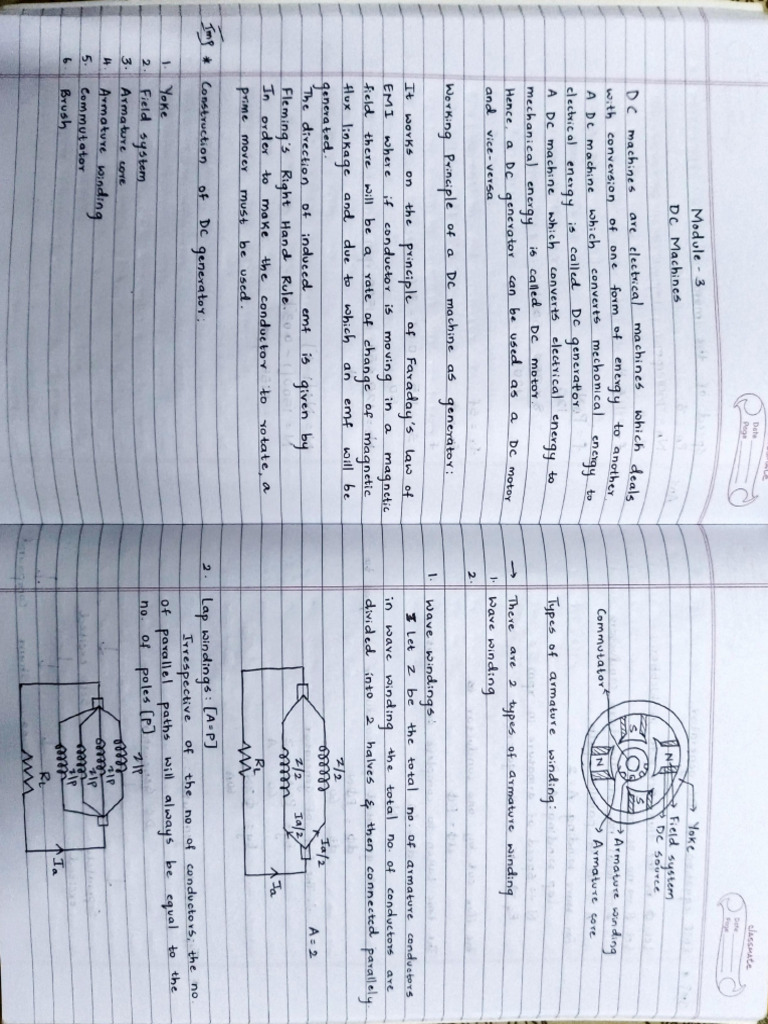 classmate
Date
Page
Module - 3
DC Machines
DC machines are electrical machines which deals
with conversion of one form of energy to another.
A DC machine which converts mechonical energy to
electrical energy is called DC generator.
A DC machine which converts electrical energy to
mechanical energy is called DC motor.
Hence, a DC generator can be used as a DC motor
and vice-versa
Working Principle of a DC machine as generator:
It works on the principle of Faraday's law of
EMI where if conductor is moving in a magnetic
field there will be a rate of change of magnetic
flux linkage and due to which an emf will be
generated.
The direction of induced emf is given by
Fleming's Right Hand Rule.
In order to make the conductor to rotate, a
prime mover must be used.
Imp * Construction of DC generator:
1. Yoke
2. Field system
3. Armature core
4. Armature winding
5. Commutator
6. Brush
classmate
Date
Page
Yoke
Field system
DC source
Armature winding
Armature core
Commutator
N
S
S
N
Types of armature winding:
→ There are 2 types of armature winding
1. Wave winding
2.
1. Wave windings:
Let Z be the total no. of armature conductors
in wave winding the total no. of conductors are
divided into 2 halves & then connected parallely.
Z/2
Ia/2
A = 2
Z/2
Ia/2
Ia
RL
2. Lap windings: [A=P]
Irrespective of the no. of conductors, the no.
of parallel paths will always be equal to the
no. of poles [P]
Z/P
Z/P
Z/P
Z/P
Ia
RL